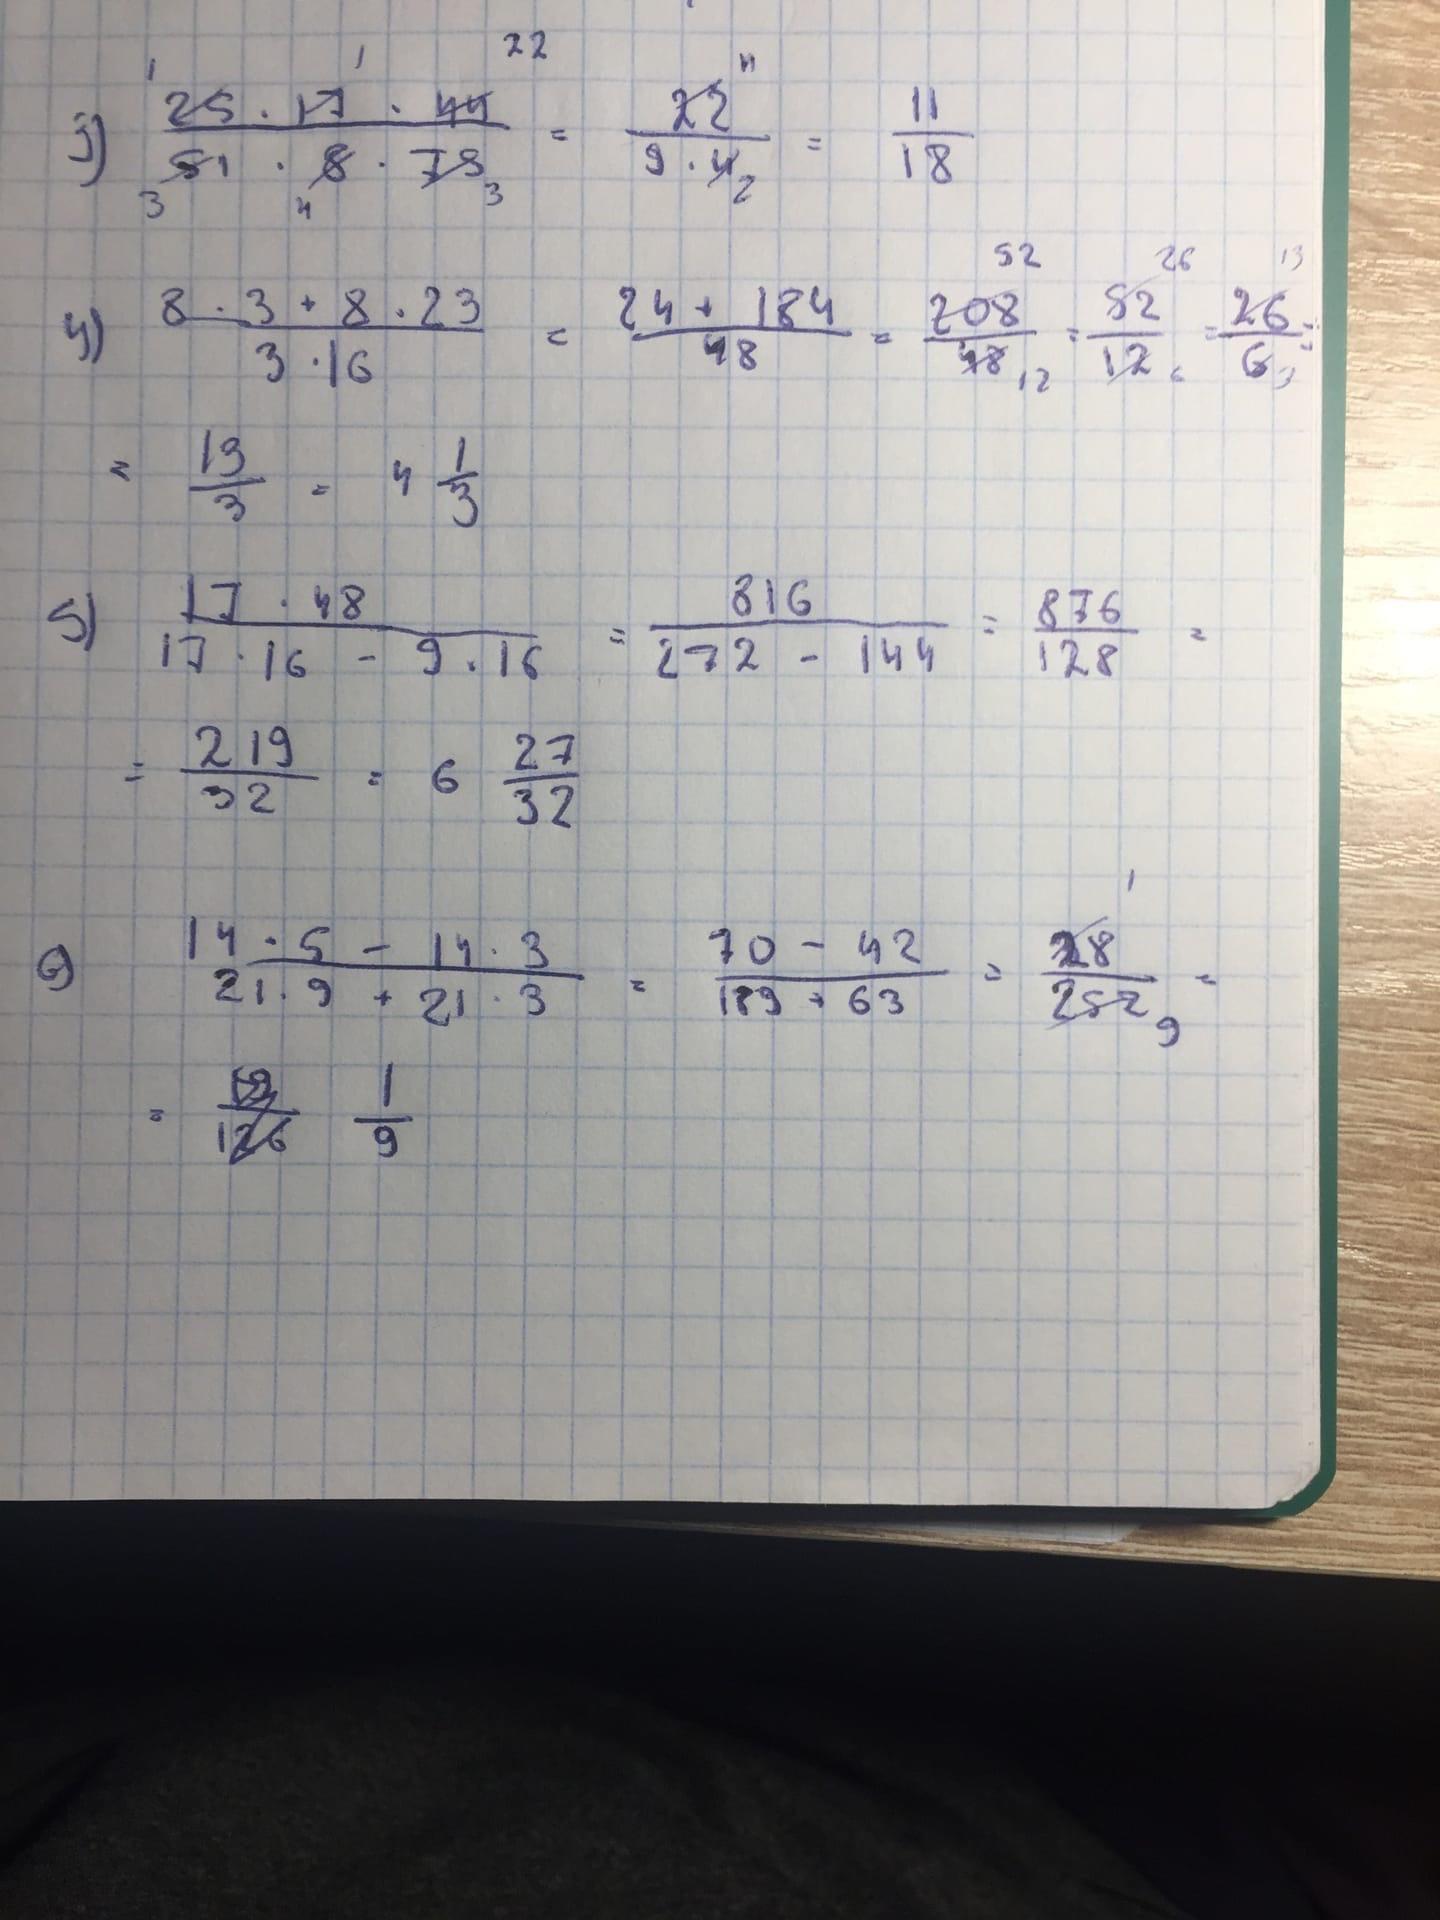 1 1 22
3) 25 · 17 · 44 / 51 · 8 · 75 = 22 / 9 · 4 = 11 / 18
3 4 3 11 2
4) 8 · 3 + 8 · 23 / 3 · 16 = 24 + 184 / 48 = 208 / 48 = 52 / 12 = 26 / 6 =
52 12 26 6 13 3
= 13 / 3 = 4 1/3
5) 17 · 48 / 17 · 16 - 9 · 16 = 816 / 272 - 144 = 876 / 128 =
= 219 / 32 = 6 27/32
6) 14 · 5 - 14 · 3 / 21 · 9 + 21 · 3 = 70 - 42 / 189 + 63 = 28 / 252 =
1 9
= 126 1/9